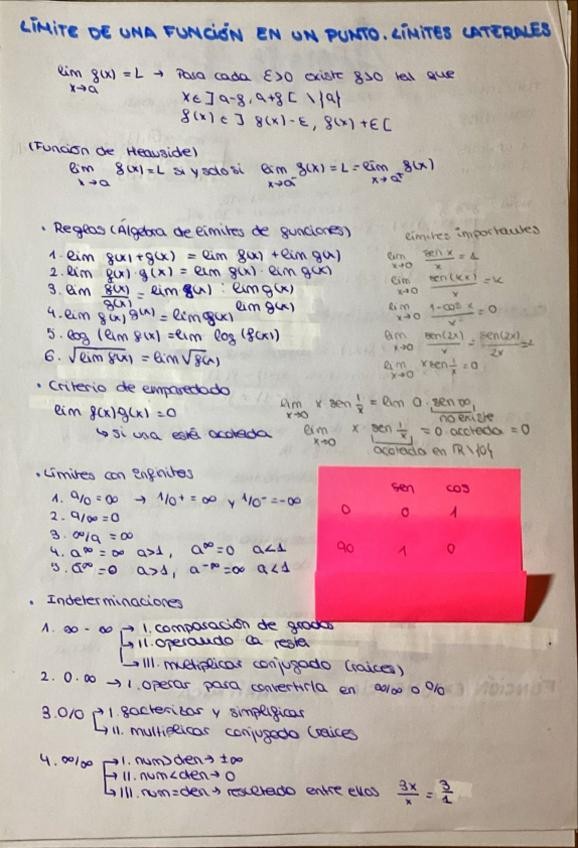 LÍMITE DE UNA FUNCIÓN EN UN PUNTO. LÍMITES LATERALES
lim f(x) = L → Para cada ε>0 existe δ>0 tal que
x→a
x∈]a-δ, a+δ[ \{a}
f(x)∈]f(x)-ε, f(x)+ε[
(Función de Heaviside)
lim f(x)=L si y solo si lim f(x)=L=lim f(x)
x→a x→a⁻ x→a⁺
· Reglas (Álgebra de límites de funciones)
1. lim f(x)+g(x) = lim f(x) + lim g(x)
2. lim f(x)·g(x) = lim f(x)·lim g(x)
3. lim f(x)/g(x) = lim f(x) : lim g(x)
4. lim f(x)^g(x) = lim f(x)^lim g(x)
5. log (lim f(x) = lim log (f(x))
6. √lim f(x) = lim √f(x)
Límites importantes
lim x→0 sen x/x = 1
lim x→0 sen(kx)/x = k
lim x→0 1-cos x/x = 0
lim x→0 sen(2x)/x = sen(2x)/2x =2
lim x→0 x sen 1/x = 0
· Criterio de emparedado
lim f(x)g(x) = 0
↳ si una está acotada
lim x→0 x·sen 1/x = lim 0·sen ∞,
no existe
lim x→0 x·sen 1/x = 0·acotada = 0
acotada en R\{0}
· Límites con infinitos
1. a/0 = ∞ → 1/0⁺ = ∞ y 1/0⁻ = -∞
2. a/∞ = 0
3. ∞/a = ∞
4. a^∞ = ∞ a>1, a^∞ = 0 a<1
5. a^-∞ = 0 a>1, a^-∞ = ∞ a<1
sen cos
0 0 1
90 1 0
· Indeterminaciones
1. ∞ - ∞ → I. comparación de grados
→ II. operando la resta
↳ III. multiplicar conjugado (raíces)
2. 0·∞ → I. operar para convertirla en ∞/∞ o 0/0
3. 0/0 → I. factorizar y simplificar
↳ II. multiplicar conjugado (raíces
4. ∞/∞ → I. num>den → ±∞
→ II. num<den → 0
↳ III. num=den → resultado entre ellos 3x/x = 3/1